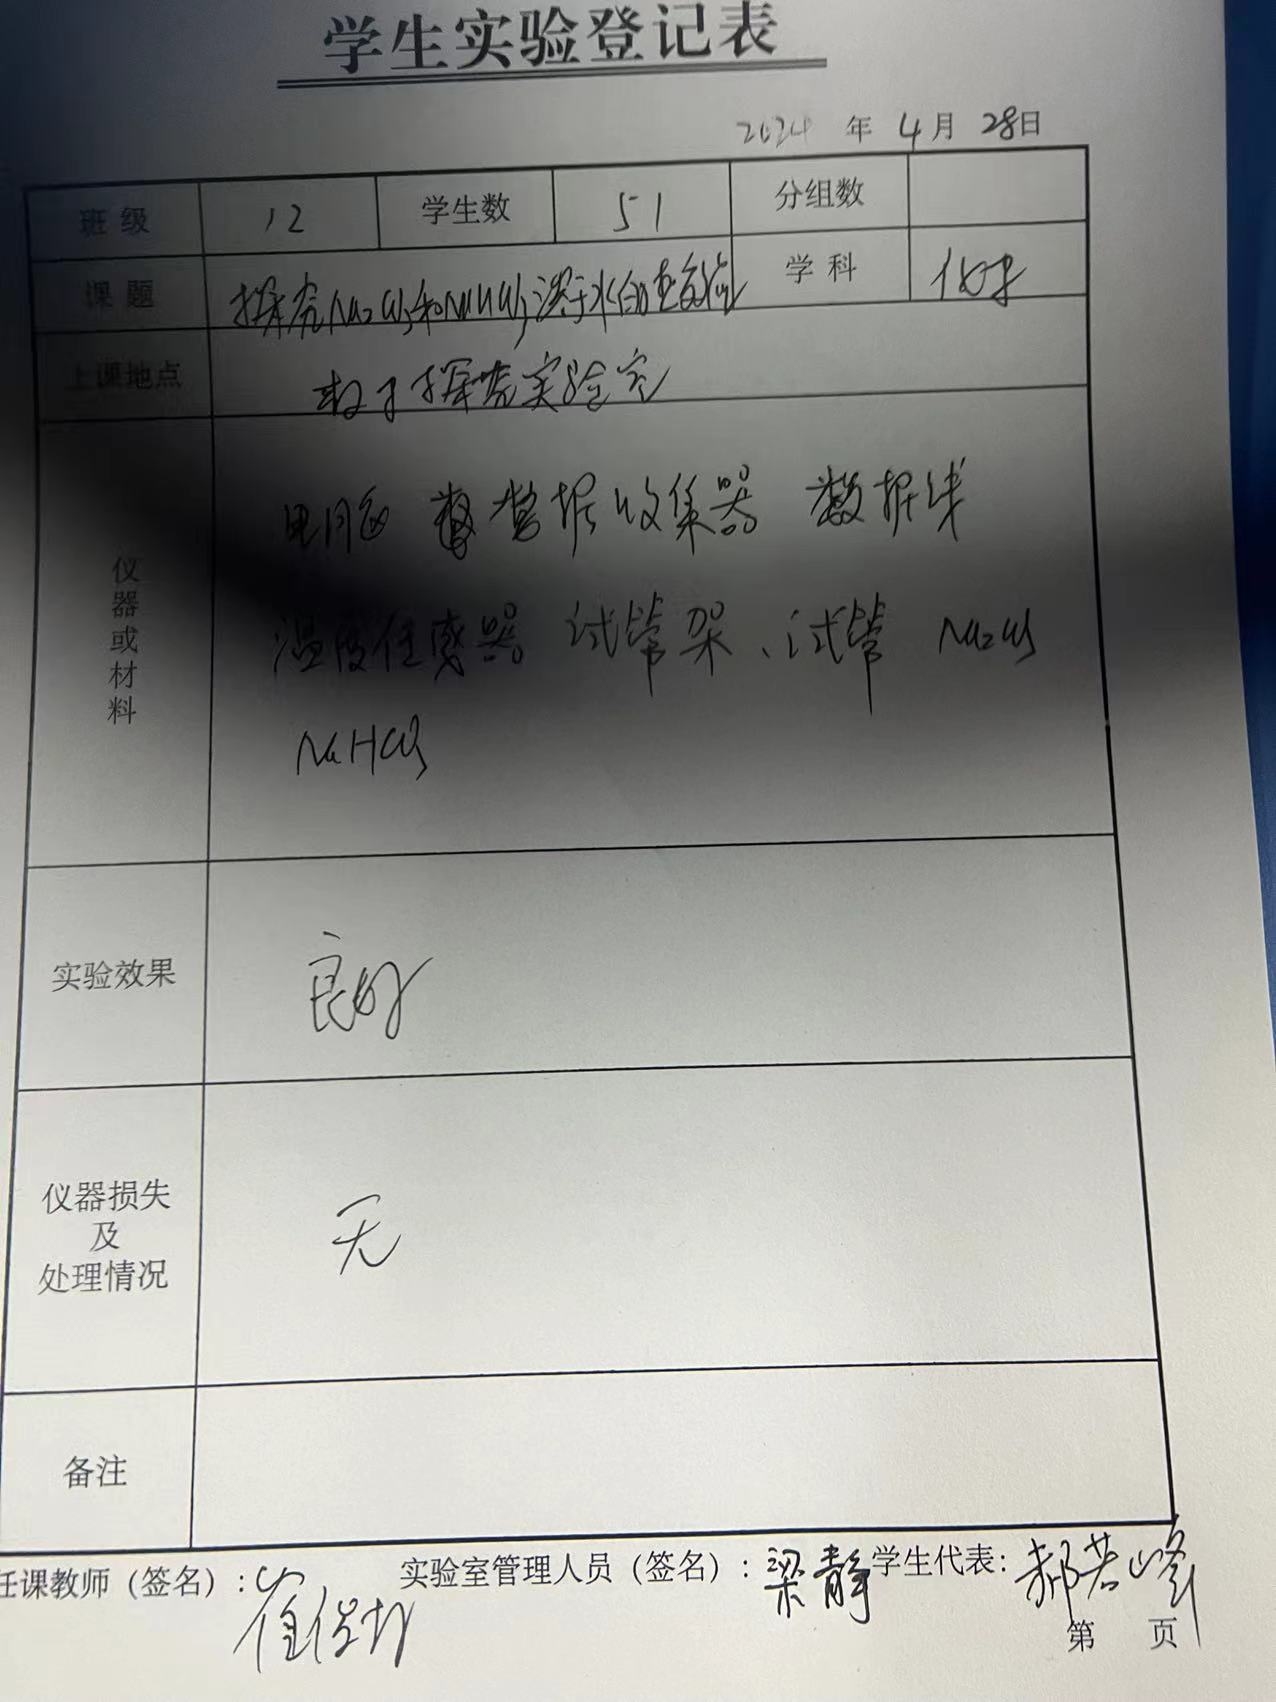 学生实验登记表
2024 年 4 月 28日
班级 12 学生数 51 分组数
课题 探究Na2CO3和NaHCO3溶于水的热效应 学科 化学
上课地点 数字探究实验室
仪器或材料
电脑 数据收集器 数据线
温度传感器 试管架、试管 Na2CO3
NaHCO3
实验效果 良好
仪器损失
及
处理情况
无
备注
任课教师（签名）：崔 实验室管理人员（签名）：梁静 学生代表：郝若峰
第 页